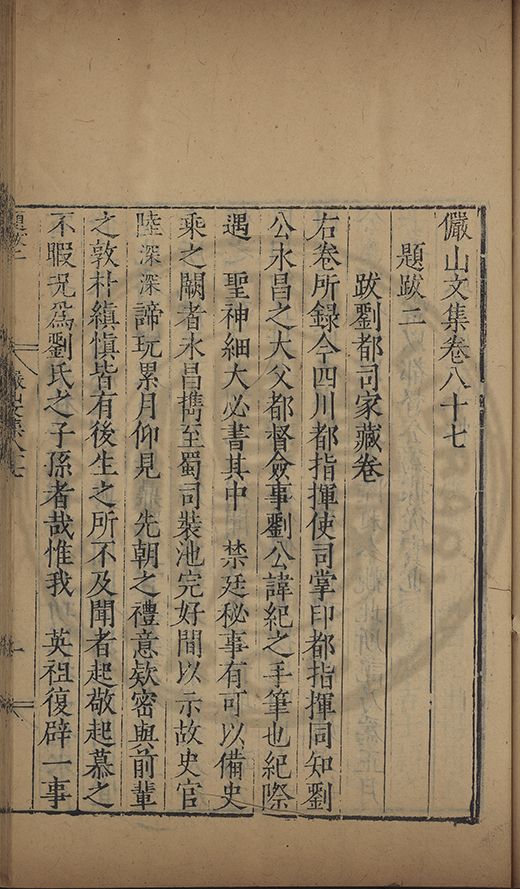 儼山文集卷八十七
題跋二
跋劉都司家藏卷
右卷所錄今四川都指揮使司掌印都指揮同知劉
公永昌之大父都督僉事劉公諱紀之手筆也紀際
遇　聖神細大必書其中　禁廷秘事有可以備史
乘之闕者永昌擕至蜀司裝池完好間以示故史官
陸深深諦玩累月仰見　先朝之禮意欵密與前輩
之敦朴縝慎皆有後生之所不及聞者起敬起慕之
不暇況爲劉氏之子孫者哉惟我　英祖復辟一事